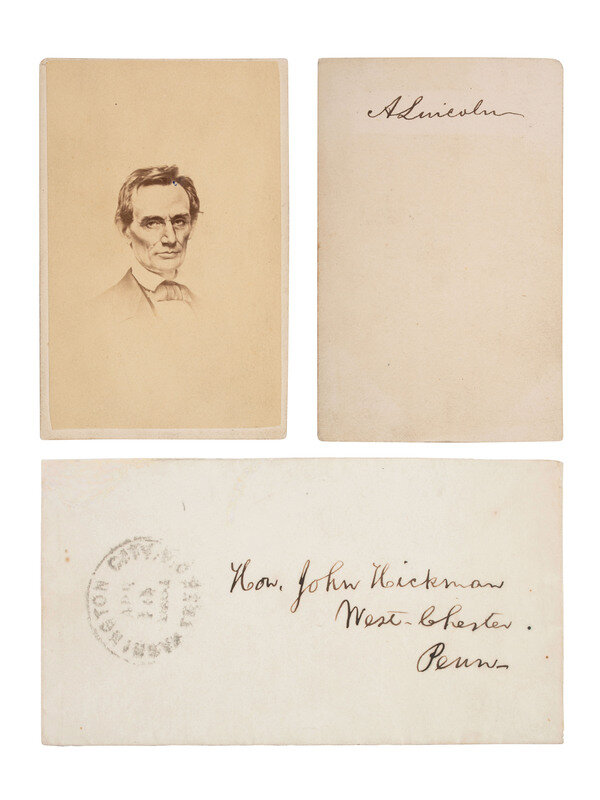 A Lincoln
Hon. John Hickman
West-Chester.
Penn-
WASHINGTON CITY. D.C.